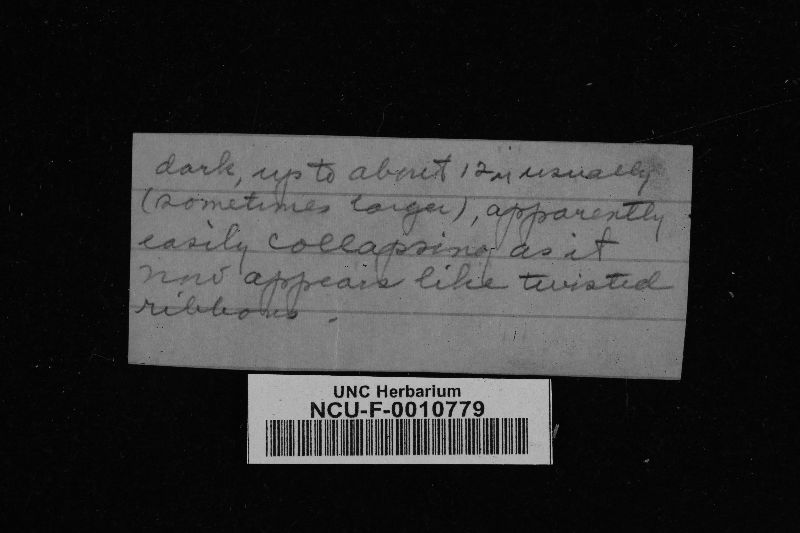 dark, up to about 12 µ usually
(sometimes larger), apparently
easily collapsing as it
now appears like twisted
ribbons.
UNC Herbarium
NCU-F-0010779